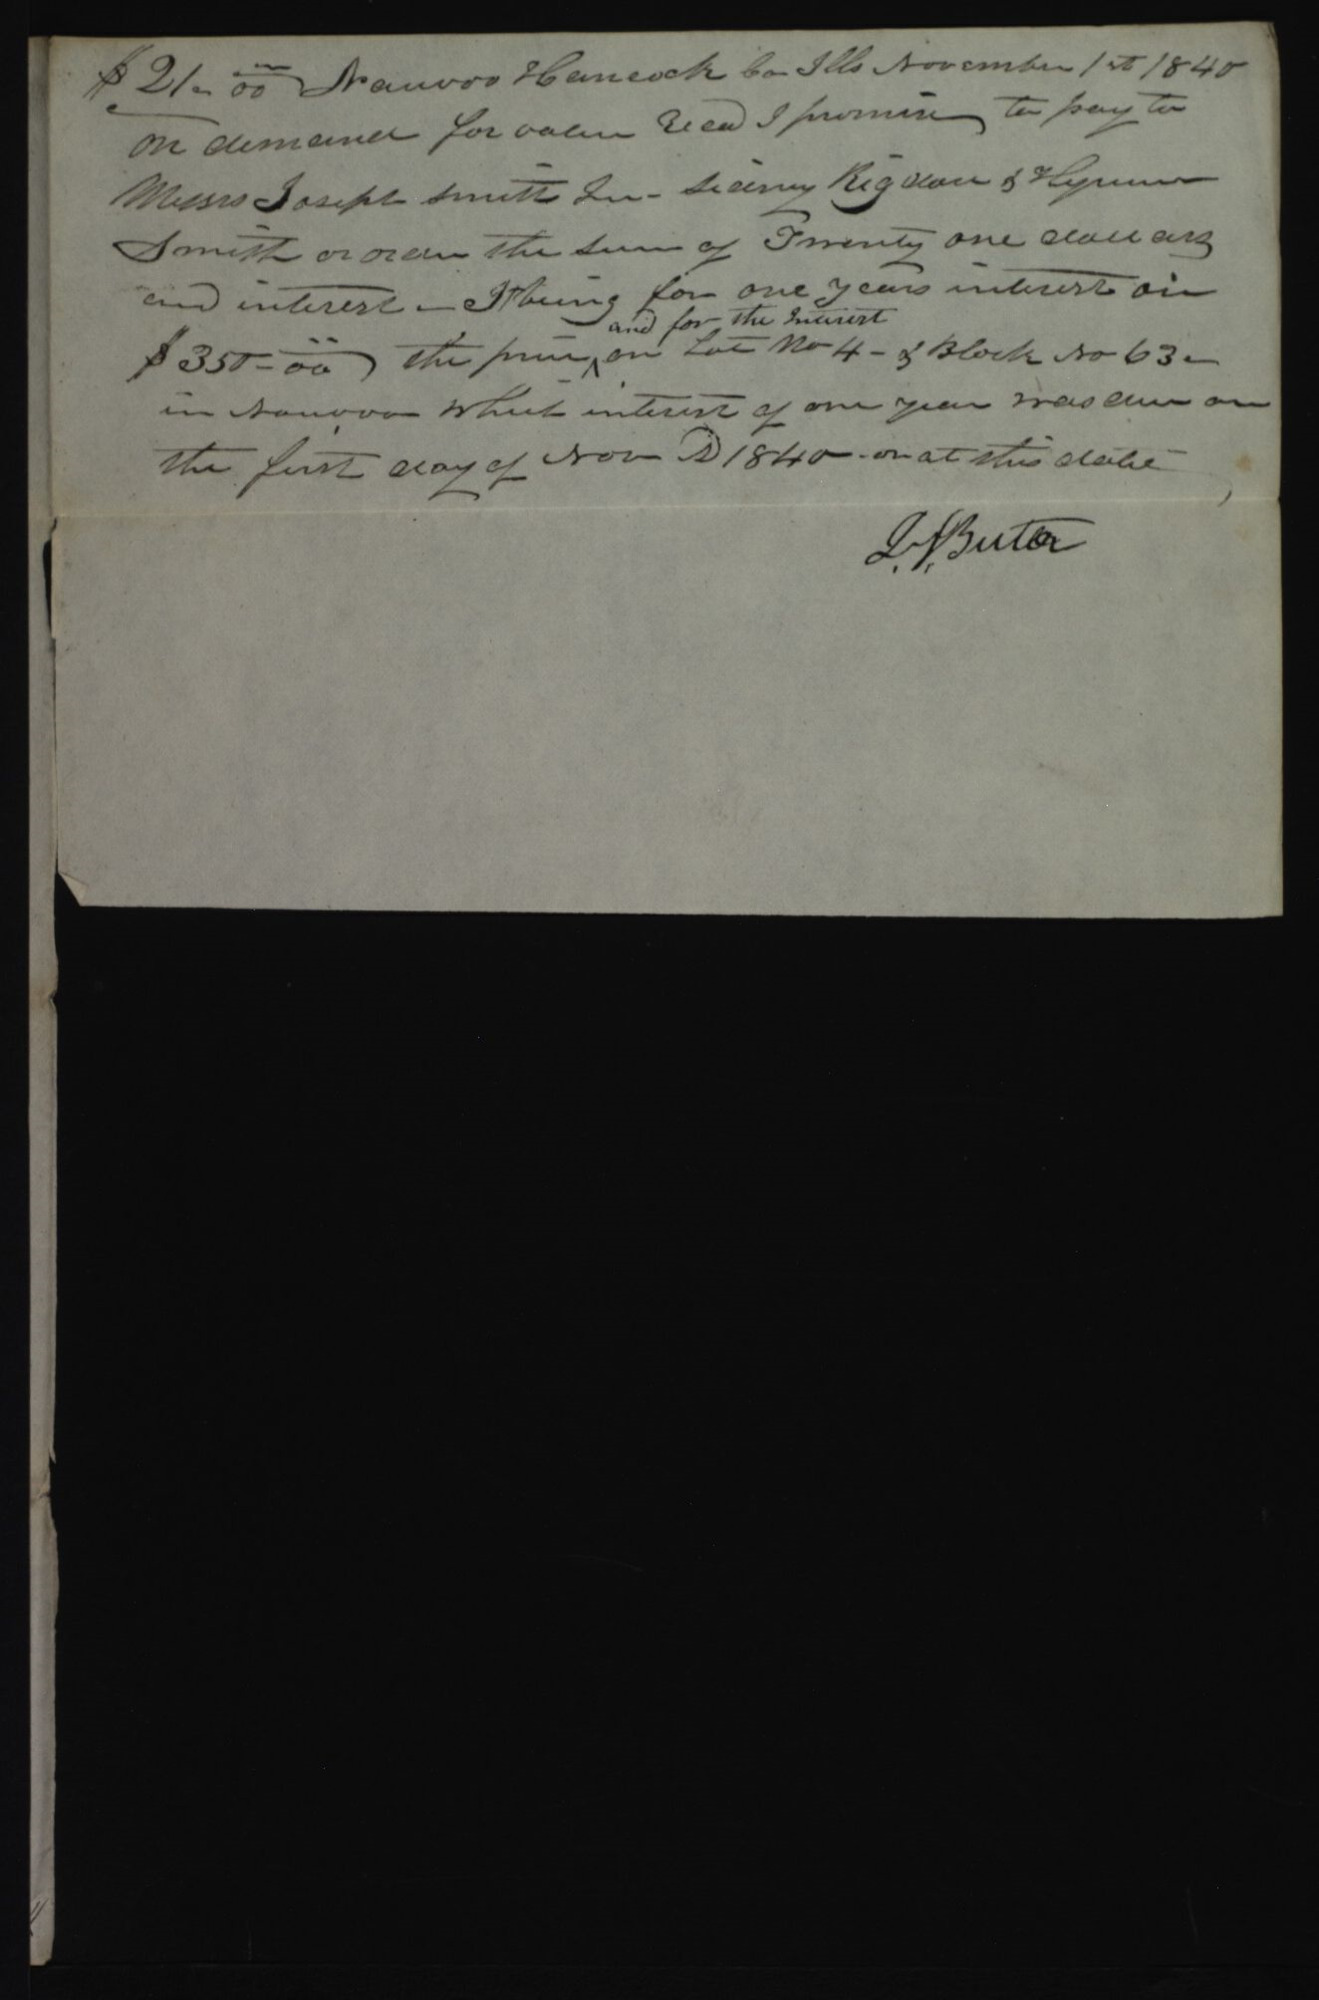 $21-00 Nauvoo Hancock Co Ills November 1st 1840
on demand for value Recd I promise to pay to
Messrs Joseph Smith Jn- Sidney Rigdon & Hyrum
Smith or order the sum of Twenty one dollars
and interest - It being for one years interest on
and for the Interest
$350-00) the price ^ on Lot No 4 - & Block No 63 -
in Nauvoo which interest of one year was due on
the first day of Nov AD 1840 - or at this date